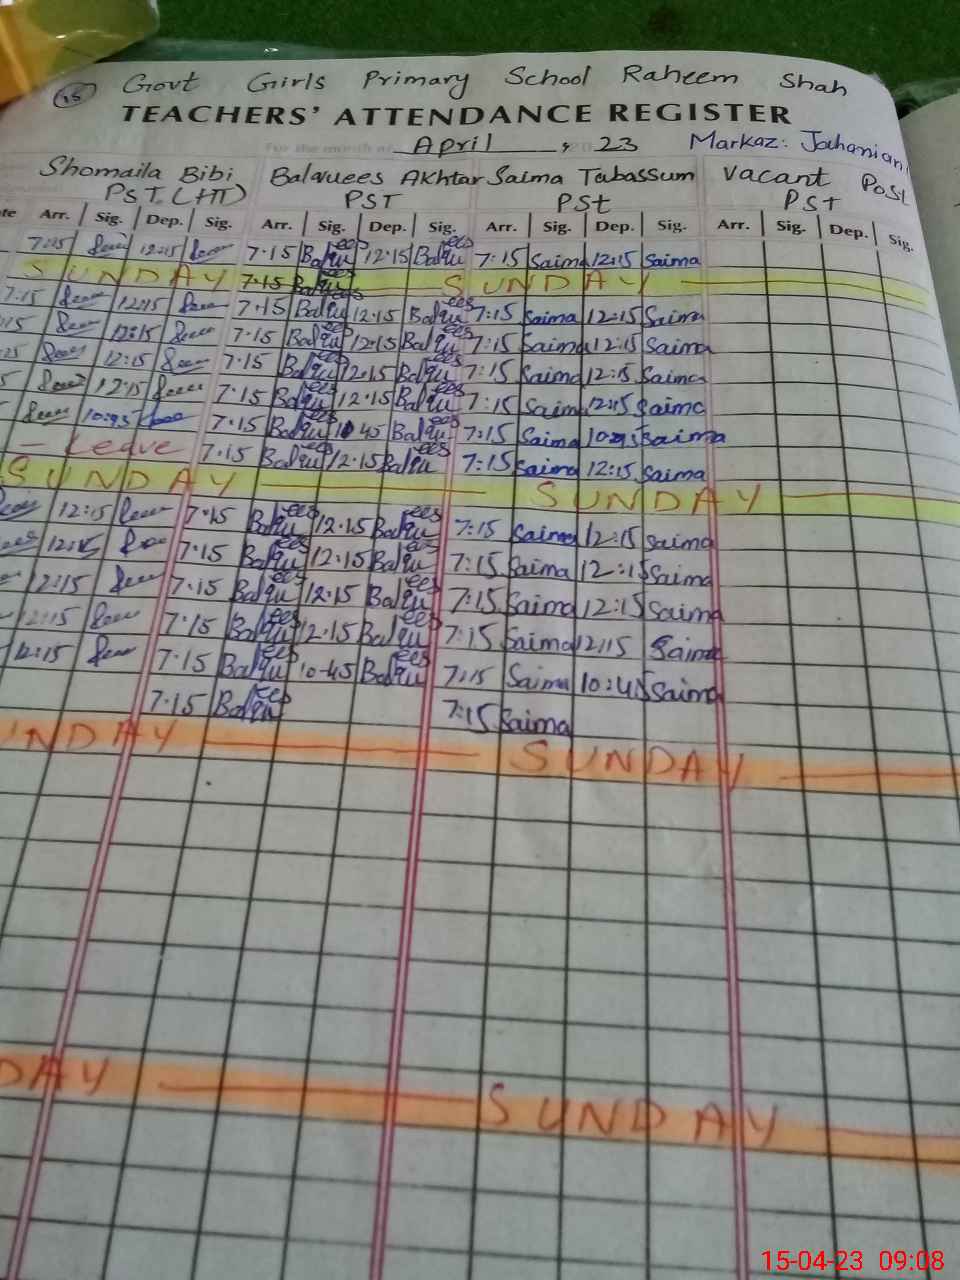 15
Govt Girls Primary School Raheem Shah
TEACHERS' ATTENDANCE REGISTER
For the month of April, 23 Markaz: Jahanian
Shomaila Bibi Balquees Akhtar Saima Tabassum Vacant Post
PST (HT) PST PSt PSt
te Arr. Sig. Dep. Sig. Arr. Sig. Dep. Sig. Arr. Sig. Dep. Sig. Arr. Sig. Dep. Sig.
7:15 12:15 7.15 Balquees 12.15 Balquees 7:15 Saima 12:15 Saima
SUNDAY 7.15 Balquees SUNDAY
7:15 12:15 7.15 Balquees 12.15 Balquees 7:15 Saima 12:15 Saima
:15 12:15 7.15 Balquees 12.15 Balquees 7:15 Saima 12:15 Saima
12:15 7.15 Balquees 12.15 Balquees 7:15 Saima 12:15 Saima
5 12:15 7.15 Balquees 12.15 Balquees 7:15 Saima 12:15 Saima
7.15 Balquees 10 45 Balquees 7:15 Saima 10:45 Saima
Leave 7.15 Balquees 12.15 Balquees 7:15 Saima 12:15 Saima
SUNDAY SUNDAY
12:15 7.15 Balquees 12.15 Balquees 7:15 Saima 12:15 Saima
12:15 7.15 Balquees 12.15 Balquees 7:15 Saima 12:15 Saima
12:15 7.15 Balquees 12.15 Balquees 7:15 Saima 12:15 Saima
12:15 7.15 Balquees 12.15 Balquees 7:15 Saima 12:15 Saima
12:15 7.15 Balquees 10-45 Balquees 7:15 Saima 10:45 Saima
7.15 Balquees 7:15 Saima
UNDAY SUNDAY
DAY SUNDAY
15-04-23 09:08